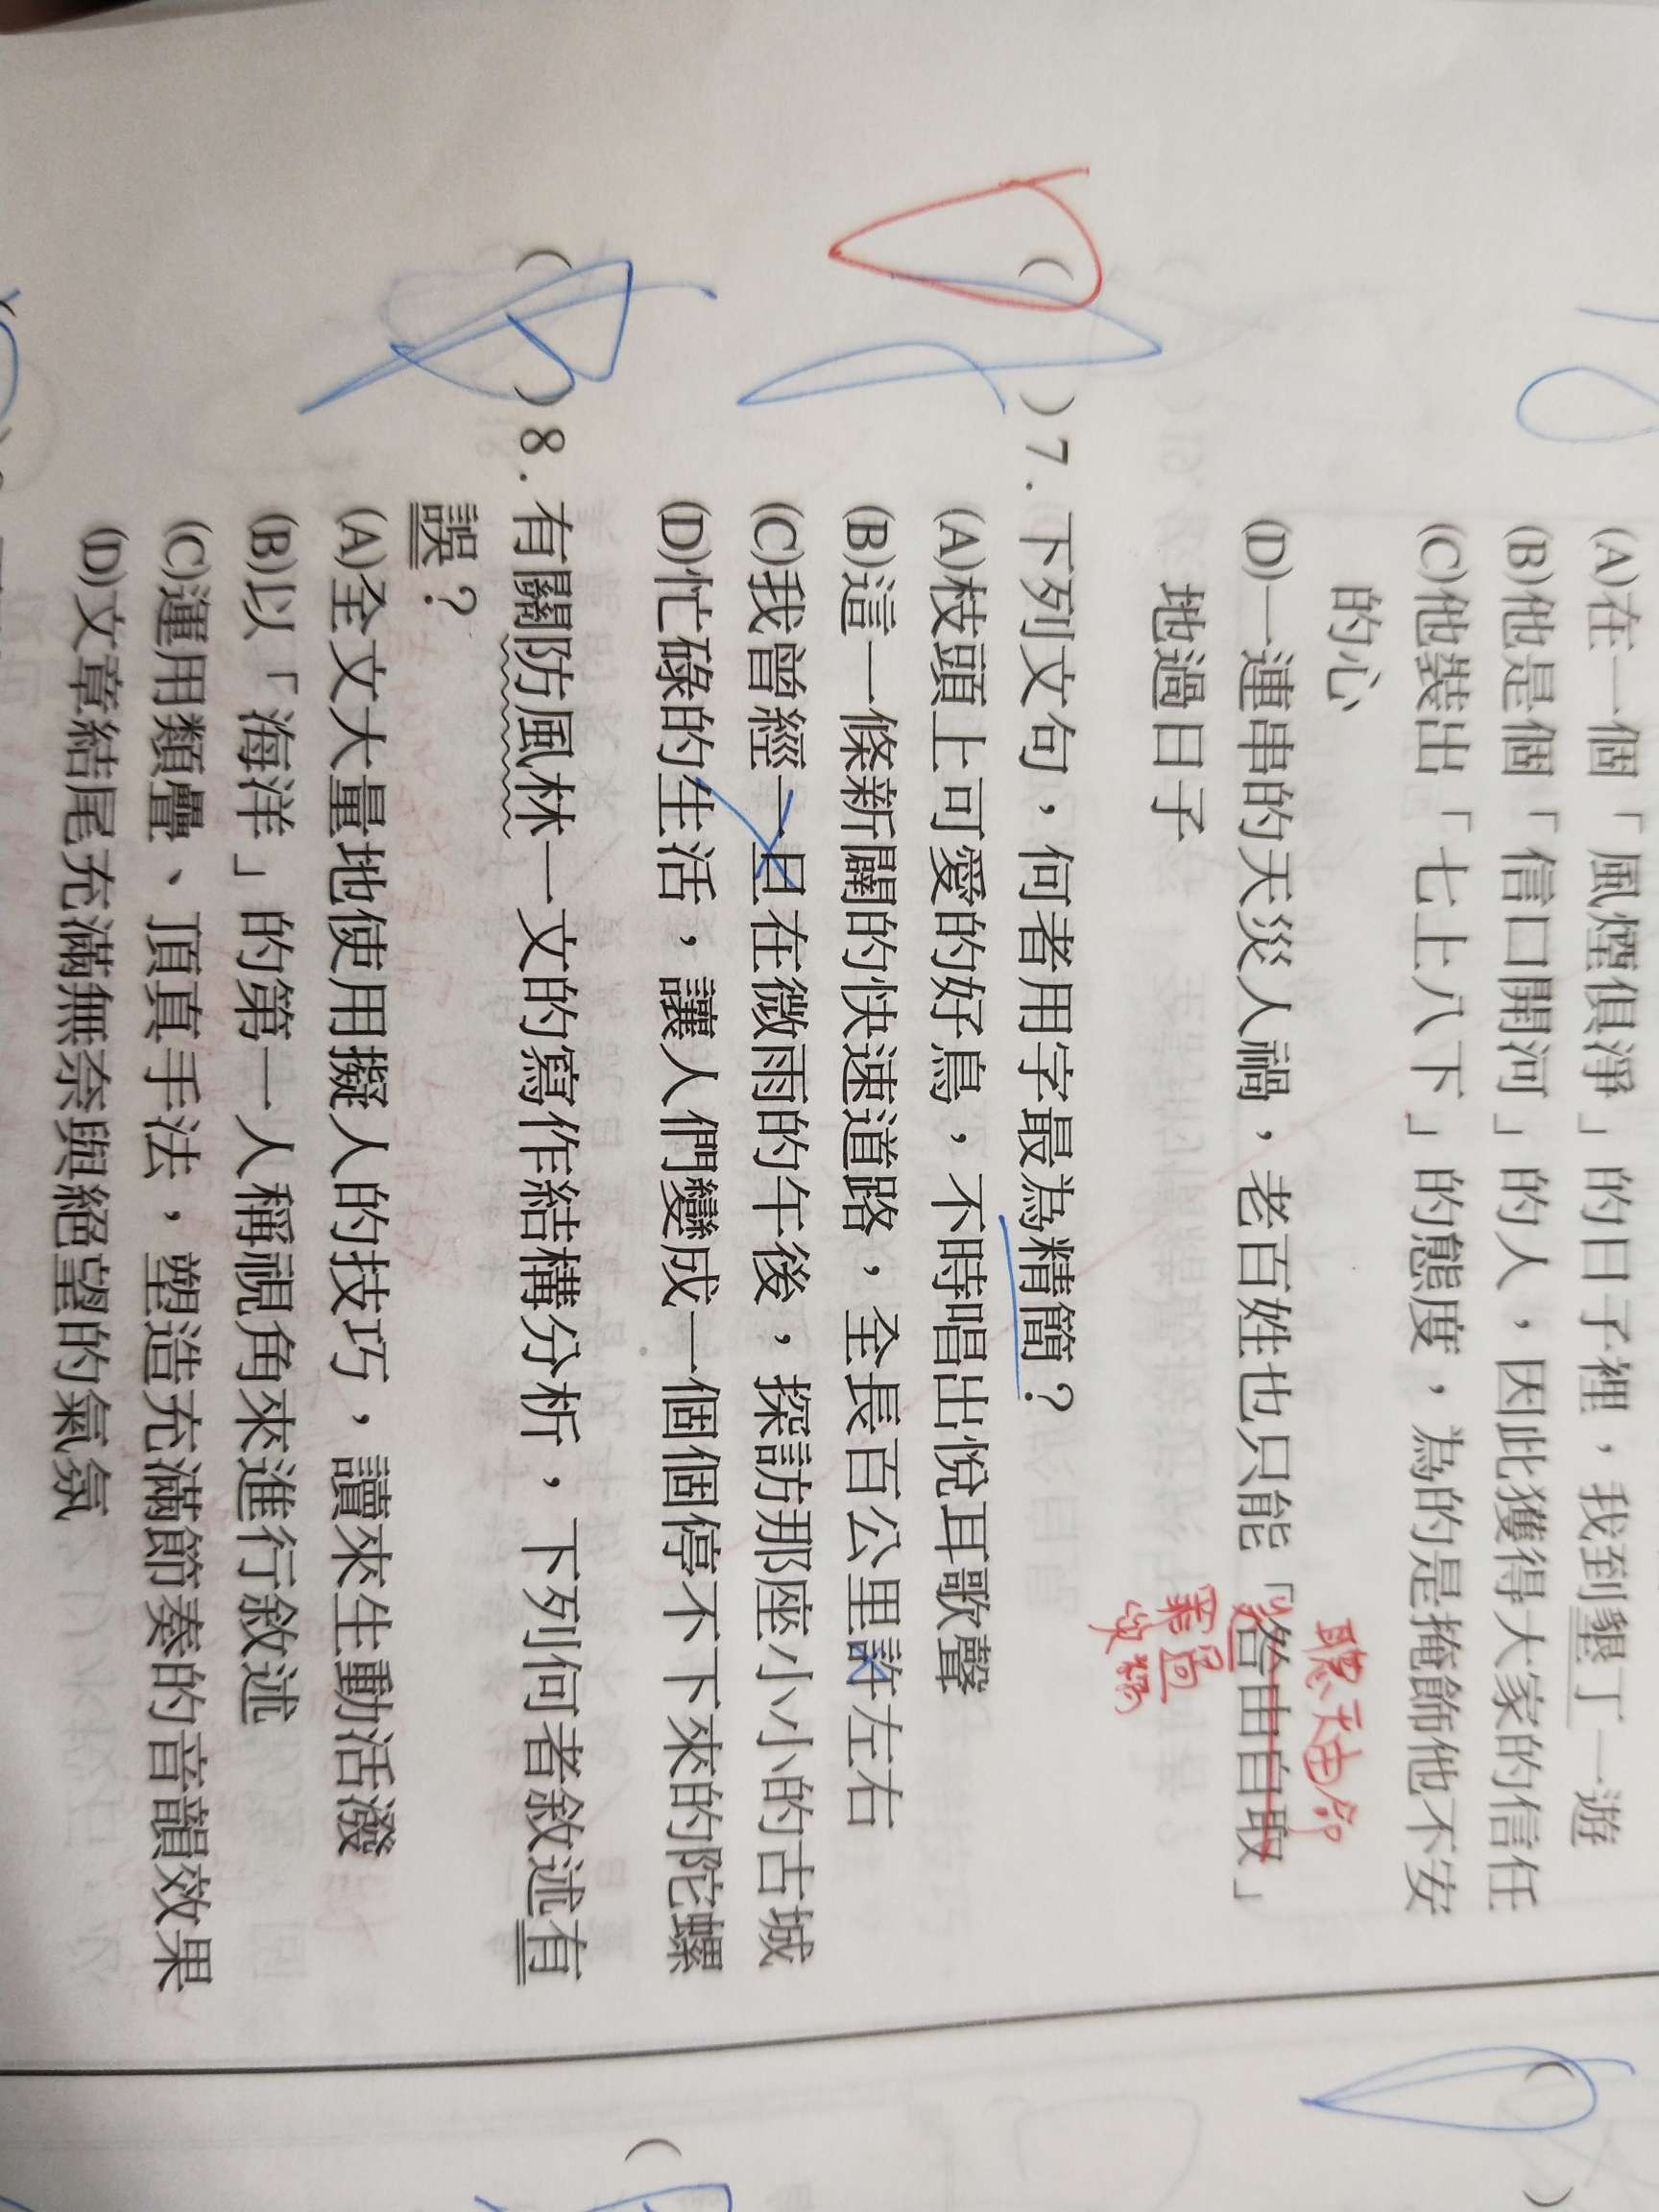 (A)在一個「風煙俱淨」的日子裡，我到墾丁一遊
(B)他是個「信口開河」的人，因此獲得大家的信任
(C)他裝出「七上八下」的態度，為的是掩飾他不安
的心
(D)一連串的天災人禍，老百姓也只能「咎由自取」
聽天由命
地過日子
罪
( )7.下列文句，何者用字最為精簡？
(A)枝頭上可愛的好鳥，不時唱出悅耳歌聲
(B)這一條新闢的快速道路，全長百公里許左右
(C)我曾經一旦在微雨的午後，探訪那座小小的古城
(D)忙碌的生活，讓人們變成一個個停不下來的陀螺
( )8.有關防風林一文的寫作結構分析，下列何者敘述有
誤？
(A)全文大量地使用擬人的技巧，讀來生動活潑
(B)以「海洋」的第一人稱視角來進行敘述
(C)運用類疊、頂真手法，塑造充滿節奏的音韻效果
(D)文章結尾充滿無奈與絕望的氣氛